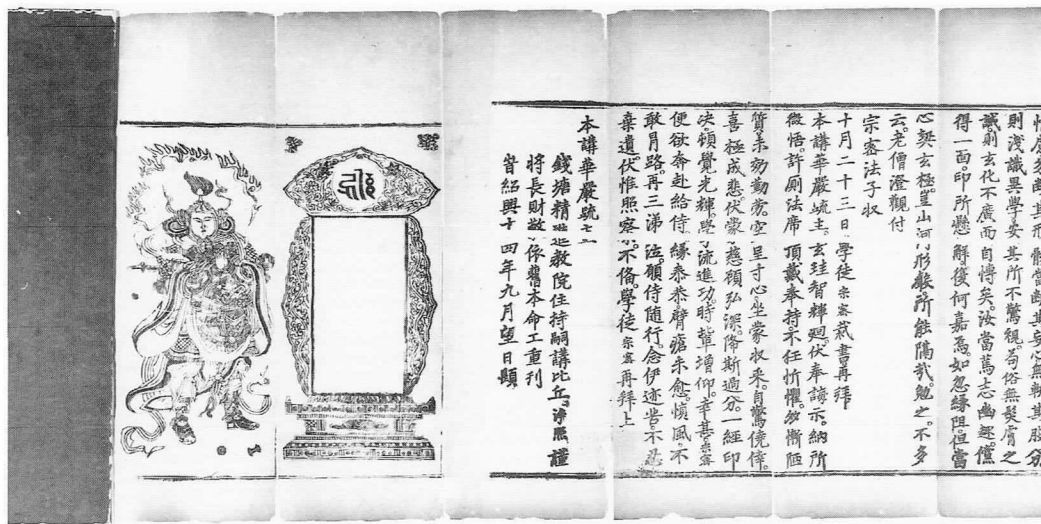 則淺識異學妄其所不驚視苟俗無髮膚之
誠則玄化不廣而自慱矣汝當篤志幽趣儻
得一面印所懸解復何嘉焉如忽緣阻但當
心契玄極豈山河形聲所能隔哉勉之不多
云老僧澄觀付
宗密法子收
十月二十三日學徒宗密裁書再拜
本講華嚴疏主玄珪智輝廻伏奉誨示納所
微悟許厠法席頂戴奉持不任忻懼慚陋
質未効勤勞空呈寸心坐蒙收采自驚僥倖
喜極成悲伏蒙慈願弘深降斯過分一經印
決頓覺光輝學流進功時輩增仰幸甚宗密
便欲奔赴給侍緣泰恭臂瘡未愈慎風不
敢冒路再三涕泣願侍隨行念伊迹苦不忍
棄遺伏惟照察不俻學徒宗密再拜上
本講華嚴疏主
錢塘精進教院住持嗣講比丘淨熈謹
將長財敬依舊本命工重刊
旹紹興十四年九月望日題